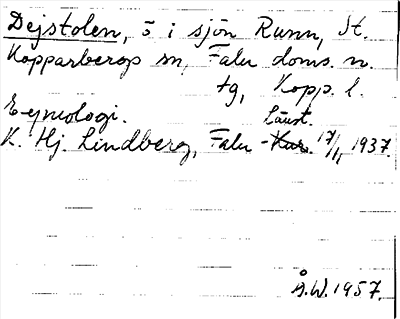 Dejstolen, ö i sjön Runn, St.
Kopparbergs sn, Falu doms. n.
tg, Kopp. l.
Etymologi.
Länst.
K. Hj. Lindberg, Falu-Kur. 17/11 1937.
Å.W. 1957.